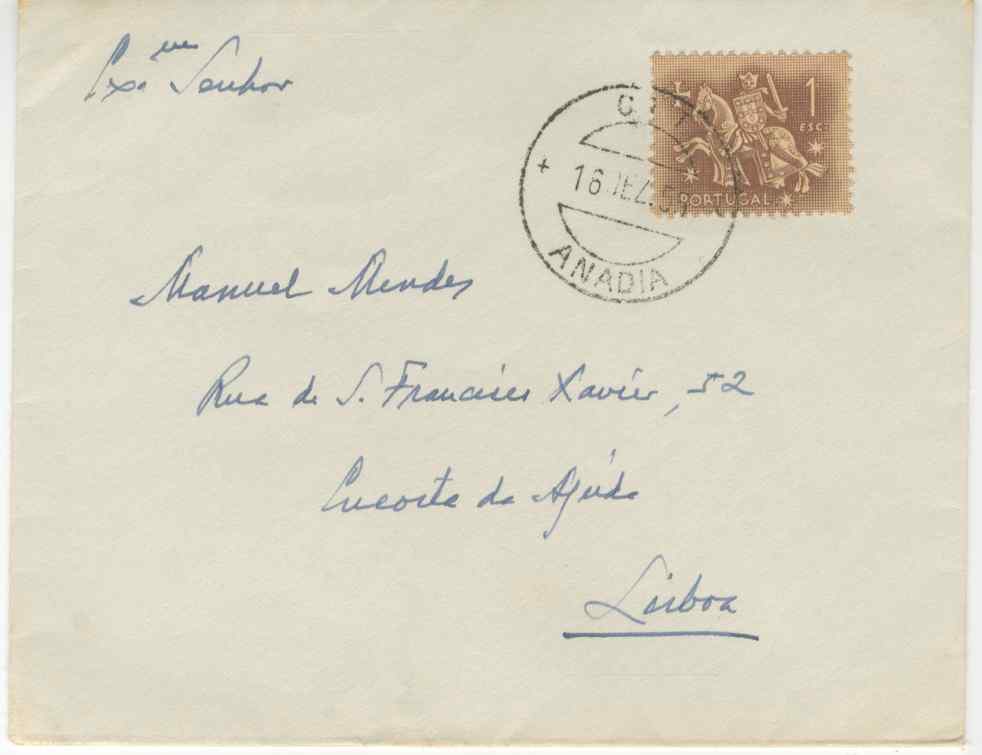 Exmo Senhor
1
ESC.
PORTUGAL
CTT
16 DEZ.
ANADIA
Manuel Mendes
Rua de S. Francisco Xavier, 52
Encosta da Ajuda
Lisboa